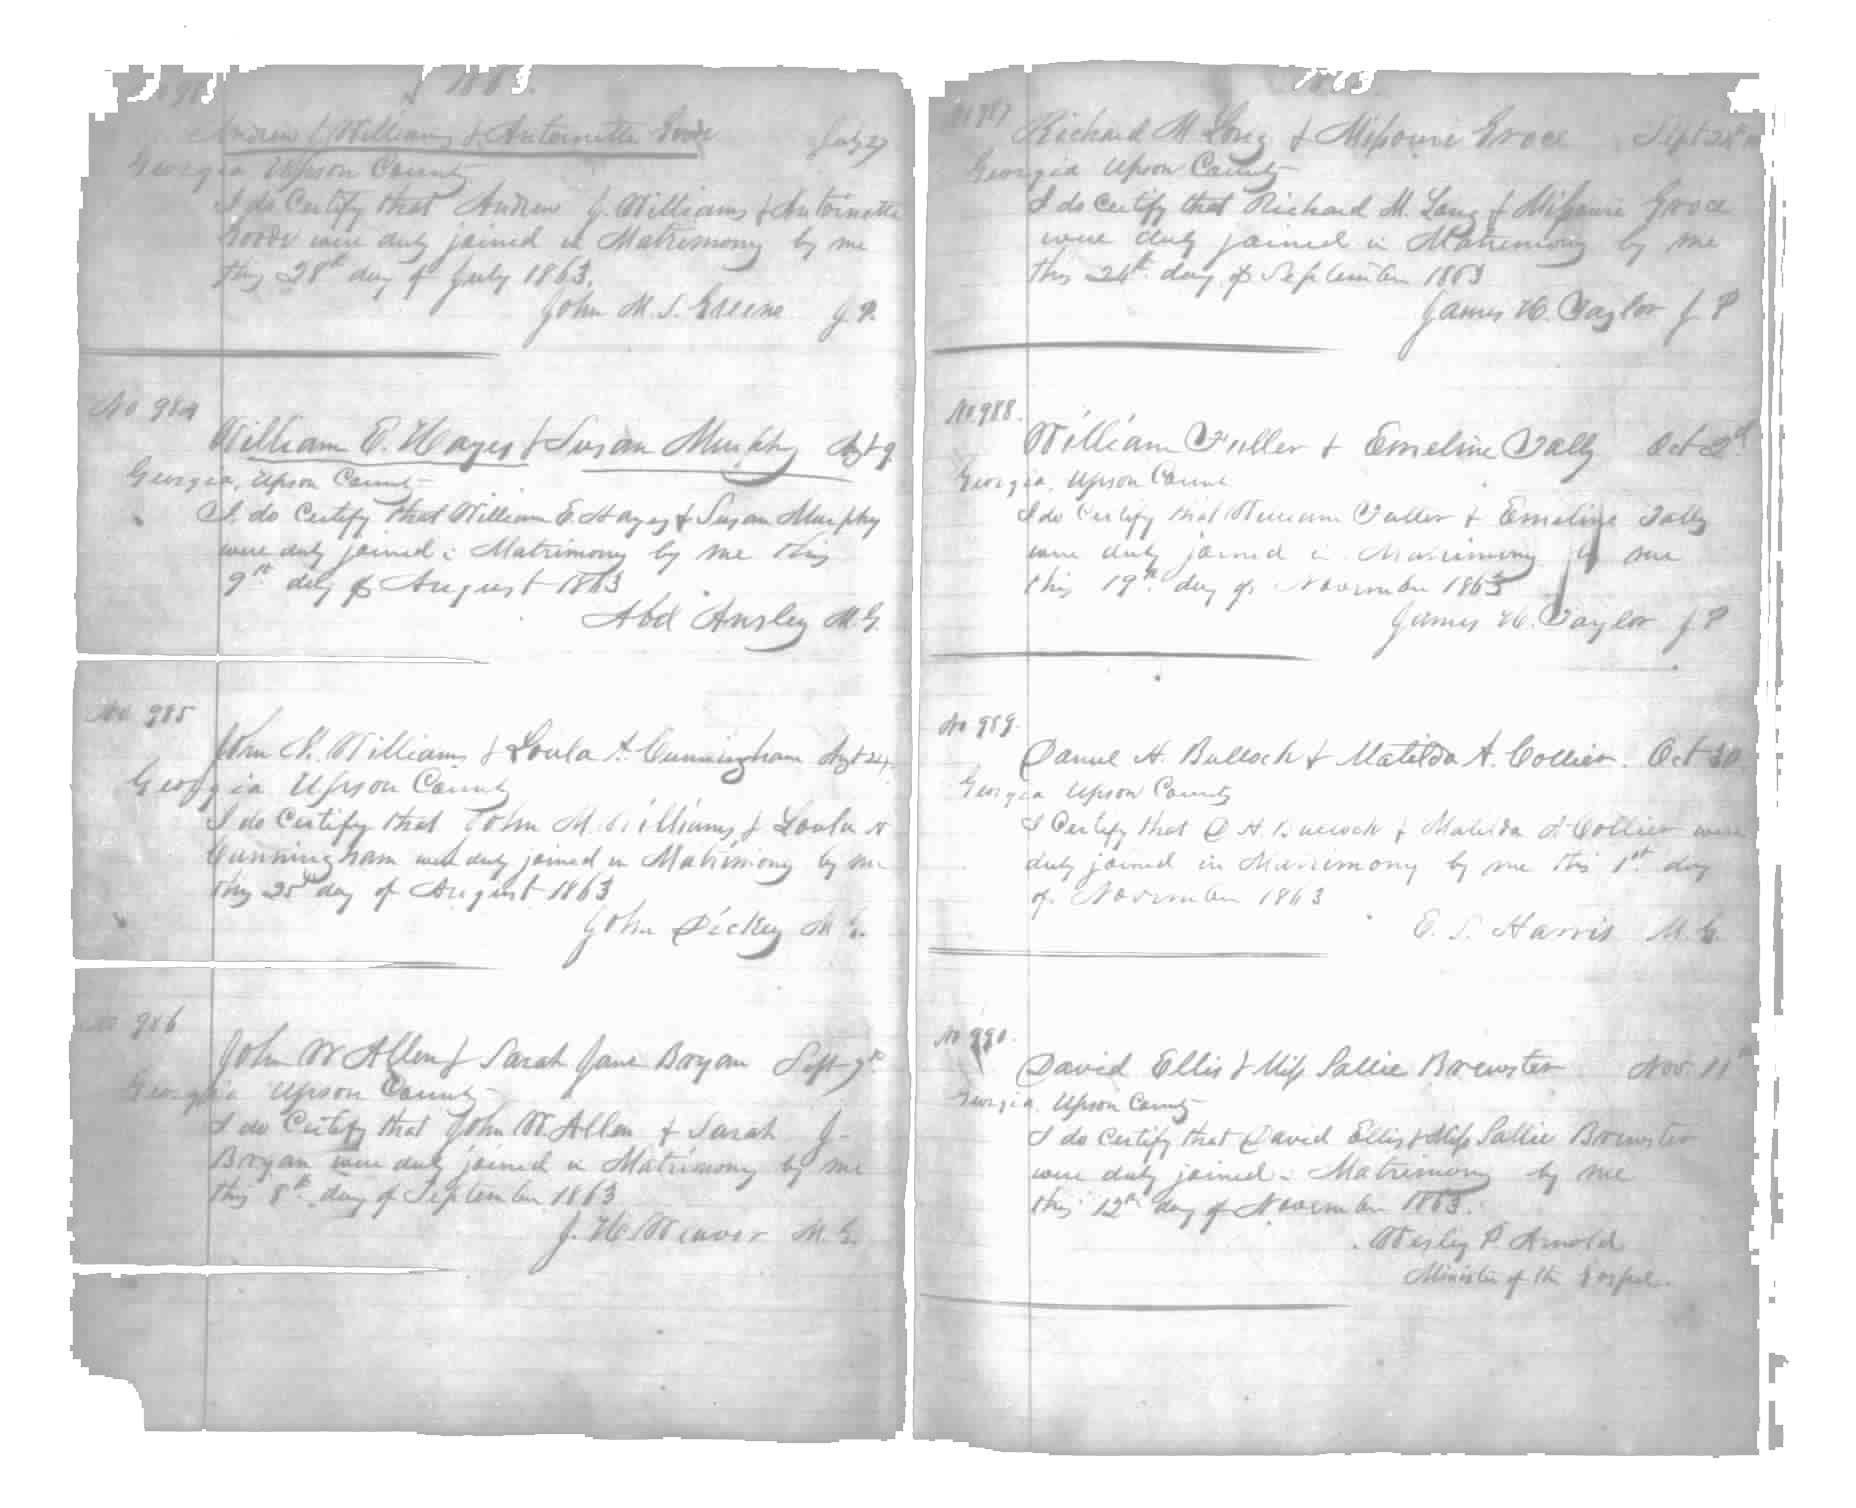 1863.
Andrew J Williams & Antoinette Goode July 27
Georgia Upson County
I do Certify that Andrew J. Williams & Antoinette
Goode were duly joined in Matrimony by me
this 28th day of July 1863.
John M. S. Greene J. P.
No. 984
William E. Hayes & Susan Murphy Augt 9
Georgia, Upson County
I do Certify that William E. Hayes & Susan Murphy
were duly joined in Matrimony by me this
9th day of August 1863
Abel Ansley M. G.
No 985
John N. Williams & Loula A. Cunningham Augt 24
Georgia Upson County
I do Certify that John M. Williams & Loula A
Cunningham were duly joined in Matrimony by me
this 25th day of August 1863
John Dickey M G.
No 986
John W Allen & Sarah Jane Bryan Sept 7th
Georgia Upson County
I do Certify that John W. Allen & Sarah J.
Bryan were duly joined in Matrimony by me
this 8th day of September 1863
J. H. Weaver M. G.
1863
No 987
Richard M Long & Missouri Groce Sept
Georgia Upson County
I do Certify that Richard M. Long & Missouri Groce
were duly joined in Matrimony by me
this day of September 1863
James H. Taylor J. P
No. 988.
William Fuller & Emeline Tally Oct 2nd
Georgia, Upson County
I do Certify that William Fuller & Emeline Tally
were duly joined in Matrimony by me
this 19th day of November 1863
James H. Taylor J. P
No 989.
Daniel H. Bulloch & Matilda A. Collier. Oct 30
Georgia Upson County
I Certify that D H. Bulloch & Matilda A Collier were
duly joined in Matrimony by me this 1st day
of November 1863
E. S. Harris M. G.
No 990.
David Ellis & Miss Sallie Brewster Nov. 11th
Georgia, Upson County
I do Certify that David Ellis & Miss Sallie Brewster
were duly joined in Matrimony by me
this 12th day of November 1863.
Wesley P. Arnold
Minister of the Gospel.